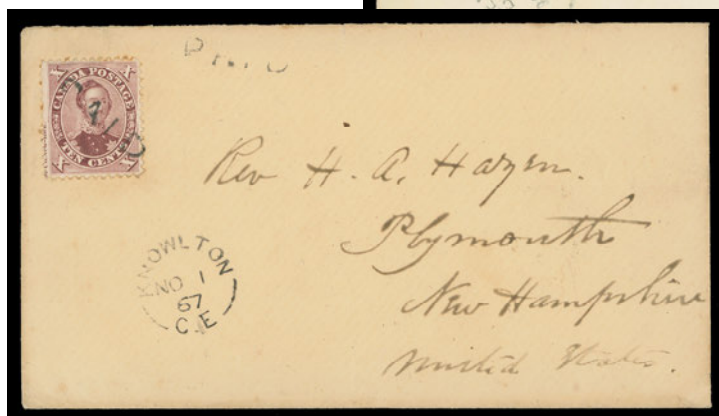 PAID
CANADA POSTAGE
X X
TEN CENTS
X X
Rev H. A. Hazen.
Plymouth
New Hampshire
United States.
KNOWLTON
NO 1
67
C.E